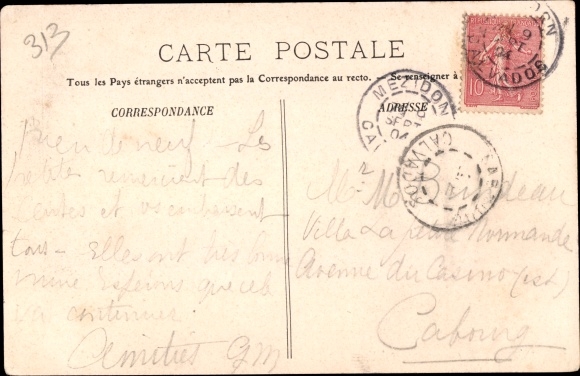 313
CARTE POSTALE
Tous les Pays étrangers n'acceptent pas la Correspondance au recto. — Se renseigner à
CORRESPONDANCE
ADRESSE
Rien de neuf — Les
petites remercient des
cartes et vs embrassent
tous — Elles ont très bonne
mine Espérons que cela
va continuer.
Amitiés GM
Villa La petite Normande
Avenue du Casino (est)
Cabourg
MEZIDON
CALVADOS
CALVADOS
10